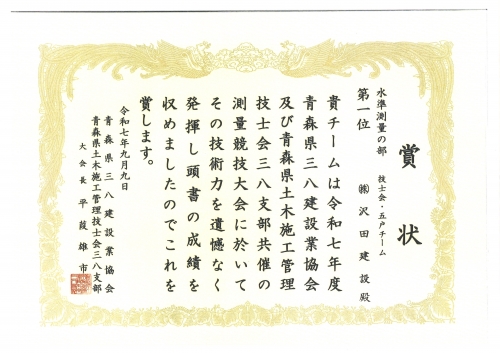 賞状
水準測量の部
技士会・五戸チーム
第一位
㈱沢田建設殿
貴チームは令和七年度
青森県三八建設業協会
及び青森県土木施工管理
技士会三八支部共催の
測量競技大会に於いて
その技術力を遺憾なく
発揮し頭書の成績を
収めましたのでこれを
賞します。
令和七年九月九日
青森県三八建設業協会
青森県土木施工管理技士会三八支部
大会長 平葭雄市